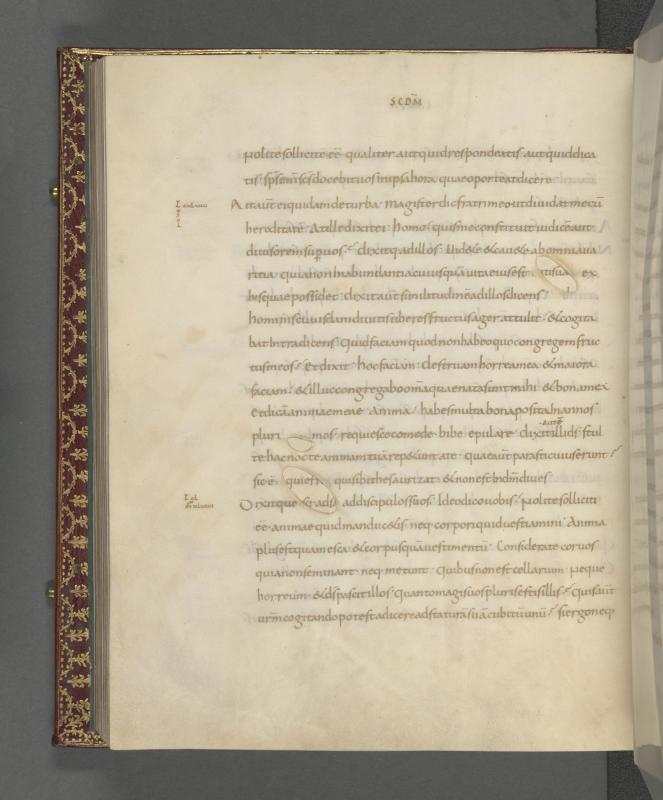 SCDM̄
Nolite solliciti eē qualiter aut quid respondeatis aut quid dica
tis· sp̄s enim scs docebit vos in ipsa hora quae oporteat dicere
Ait aut̄ ei quidam de turba· Magister dic fratri meo ut dividat mecū
hereditatē· At ille dixit ei· homo· quis me constituit iudicē aut
divisorem sup vos· dixitq· ad illos· Videte & cavete ab omni ava
ritia quia non in abundantia cuiusquā vita eius est ex
his quae possidet dixit aut̄ similitudinē ad illos dicens
hominis cuiusdam divitis uberes fructus ager attulit· & cogita
bat intra dicens· Quid faciam quod non habeo quo congregem fruc
tus meos· Et dixit· hoc faciam· Destruam horrea mea & maiora
faciam· & illuc congregabo om̄a quae nata sunt mihi & bona mea
Et dicā animae meae· Anima· habes multa bona posita in annos
plurimos requiesce comede· bibe epulare· dixit illi d̄s· stul
te hac nocte animam tuā repetunt a te· quae aut̄ parasti cuius erunt·
sic ē· qui sibi thesaurizat· & non est in dm̄ dives
Dixitque ad discipulos suos· Ideo dico vobis· Nolite solliciti
eē animae quid manducetis neq· corpori quid vestiamini· Anima
plus est quam esca· & corpus quā vestimentū· Considerate corvos
quia non seminant· neq· metunt· Quibus non est cellarium· Neque
horreum· & ds pascit illos· Quanto magis vos pluris estis illis· Quis aut̄
vrm̄ cogitando potest adicere ad staturā suā cubitū unū· si ergo neq·